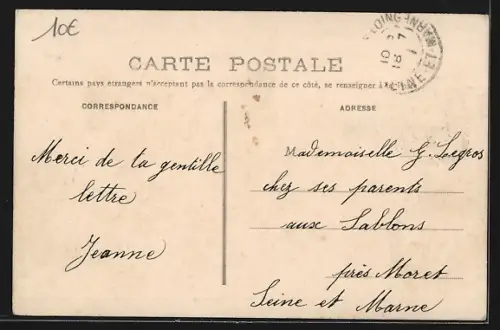 10€
CARTE POSTALE
Certains pays étrangers n'acceptant pas la correspondance de ce côté, se renseigner à la
CORRESPONDANCE
ADRESSE
Merci de ta gentille
lettre
Jeanne
Mademoiselle G. Legros
chez ses parents
aux Sablons
près Moret
Seine et Marne